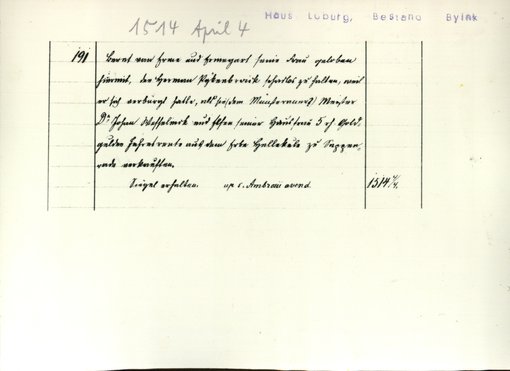 1514 April 4
Haus Loburg, Bestand Bylnk
191
Bernt van Erme und Ermegart seine Frau geloben
hiermit, der Herman schadlos zu halten, weil
er sich verbürgt hatte, als sie dem Münsterman Meister
Dr. Johan Wesselinck und Elsen seiner Hausfrau 5 Gold,
gulden Jahresrente aus dem Erbe zu Seppen,
rade verkauften.
Siegel erhalten. up s. Ambrosii avend.
1514 4/4.